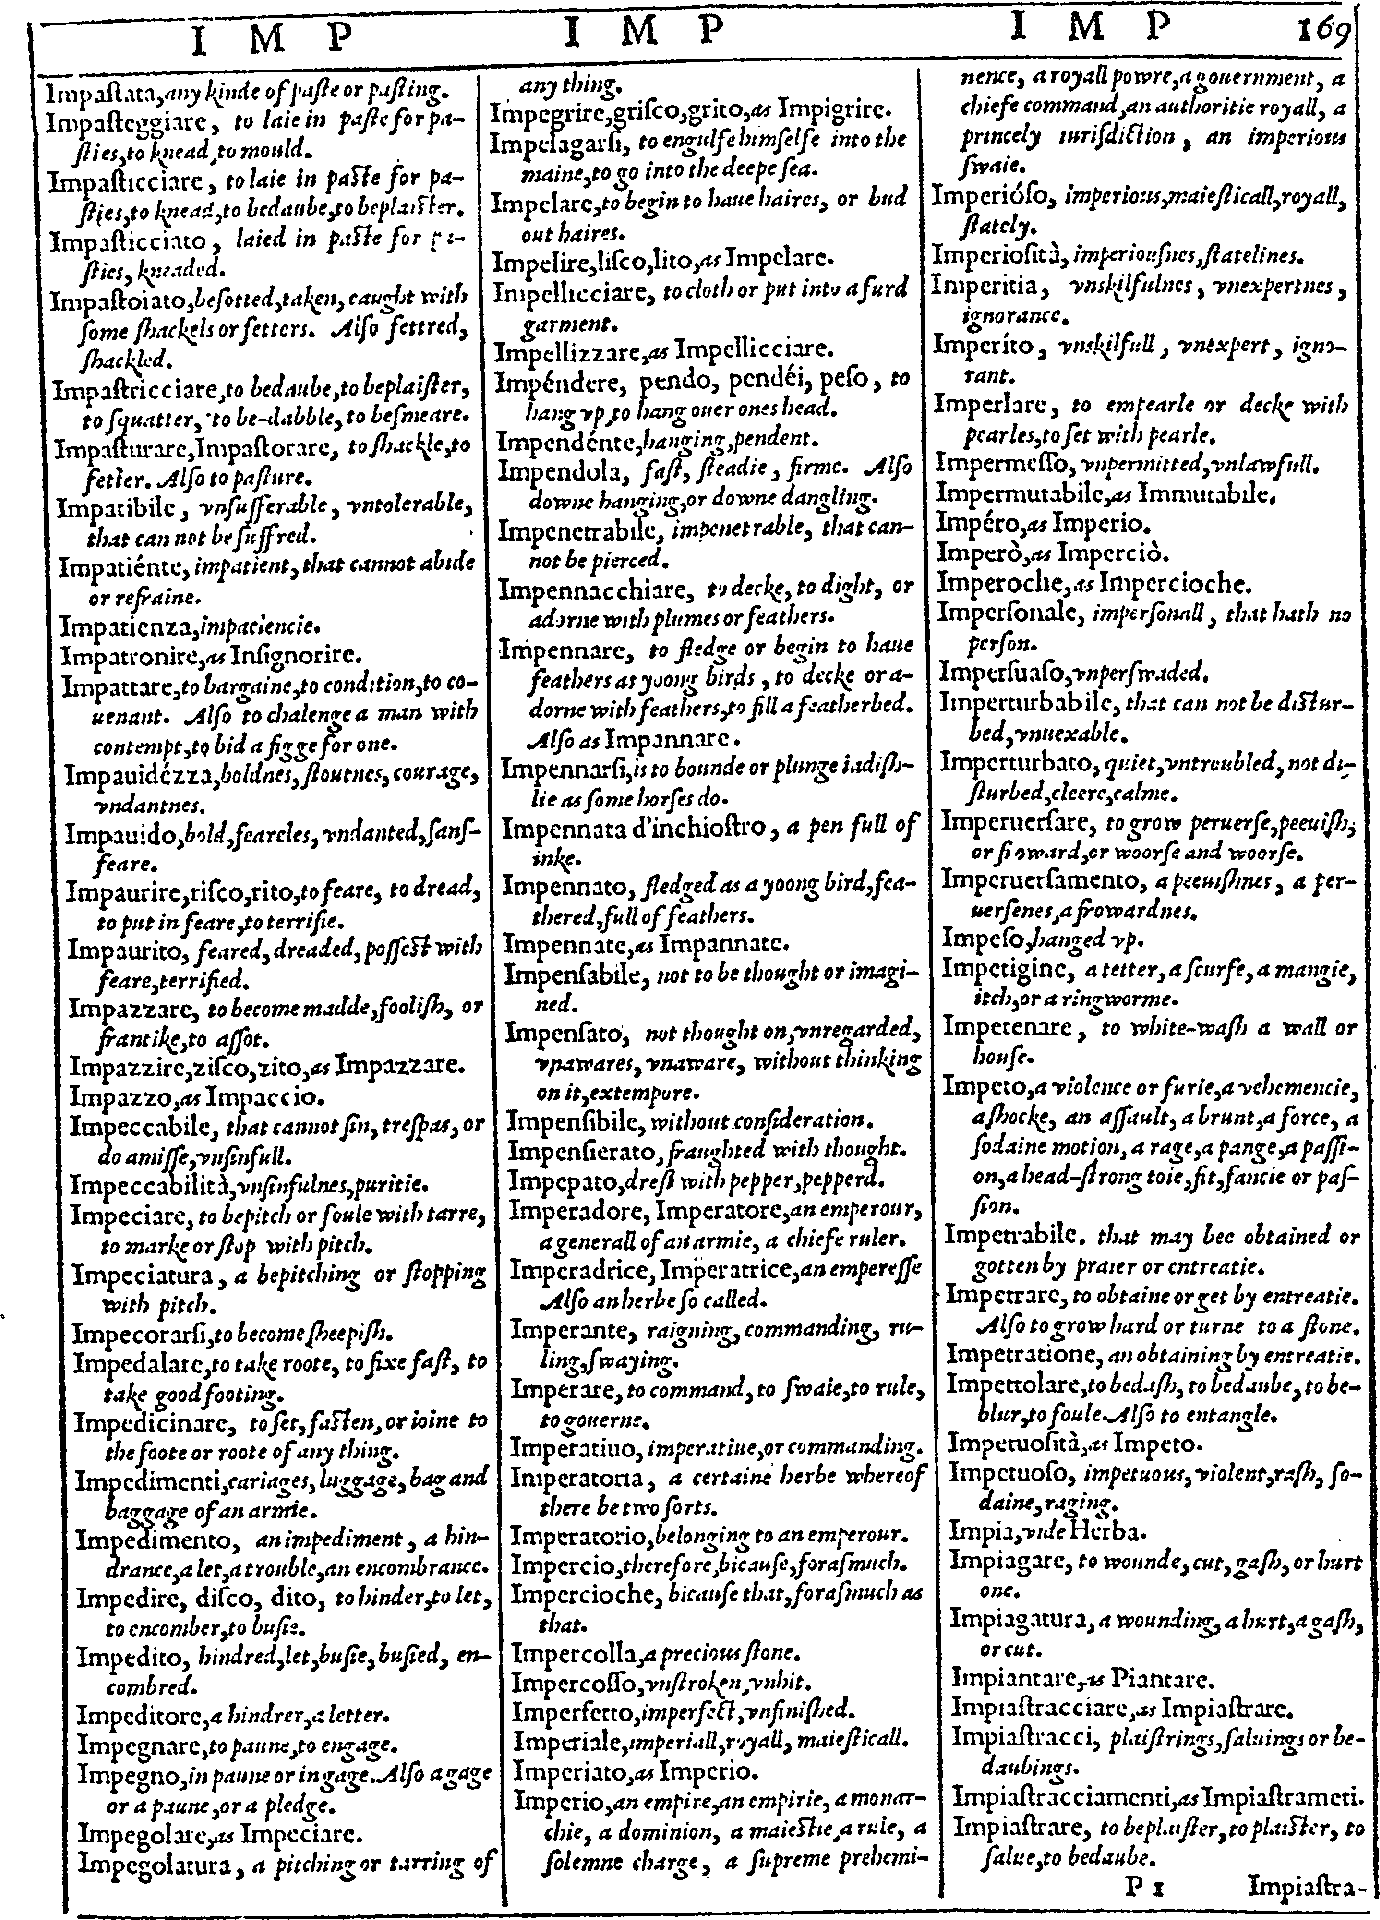 I M P I M P I M P 169
Impaſtata, any kinde of paſte or paſting.
Impaſteggiare, to laie in paſte for pa-
ſties, to knead, to mould.
Impaſticciare, to laie in paſte for pa-
ſties, to knead, to bedaube, to beplaiſter.
Impaſticciato, laied in paſte for pa-
ſties, kneaded.
Impaſtoiato, beſotted, taken, caught with
ſome ſhackels or fetters. Alſo fettred,
ſhackled.
Impaſtricciare, to bedaube, to beplaiſter,
to ſquatter, to be-dabble, to beſmeare.
Impaſturare, Impaſtorare, to ſhackle, to
fetter. Alſo to paſture.
Impatibile, vnſufferable, vntolerable,
that can not be ſuffred.
Impatiénte, impatient, that cannot abide
or refraine.
Impatienza, impaciencie.
Impatronire, as Inſignorire.
Impattare, to bargaine, to condition, to co-
uenant. Alſo to chalenge a man with
contempt, to bid a figge for one.
Impauidézza, boldnes, ſtoutnes, courage,
vndantnes.
Impauido, bold, feareles, vndanted, ſanſ-
feare.
Impaurire, riſco, rito, to feare, to dread,
to put in feare, to terrifie.
Impaurito, feared, dreaded, poſſeſt with
feare, terrified.
Impazzare, to become madde, fooliſh, or
frantike, to aſſot.
Impazzire, ziſco, zito, as Impazzare.
Impazzo, as Impaccio.
Impeccabile, that cannot ſin, treſpas, or
do amiſſe, vnſinfull.
Impeccabilità, vnſinfulnes, puritie.
Impeciare, to bepitch or foule with tarre,
to marke or ſtop with pitch.
Impeciatura, a bepitching or ſtopping
with pitch.
Impecorarſi, to become ſheepiſh.
Impedalare, to take roote, to fixe faſt, to
take good footing.
Impedicinare, to ſet, faſten, or ioine to
the foote or roote of any thing.
Impedimenti, cariages, luggage, bag and
baggage of an armie.
Impedimento, an impediment, a hin-
drance, a let, a trouble, an encombrance.
Impedire, diſco, dito, to hinder, to let,
to encomber, to buſie.
Impedito, hindred, let, buſie, buſied, en-
combred.
Impeditore, a hindrer, a letter.
Impegnare, to paune, to engage.
Impegno, in paune or in gage. Alſo a gage
or a paune, or a pledge.
Impegolare, as Impeciare.
Impegolatura, a pitching or tarring of
any thing.
Impegrire, griſco, grito, as Impigrire.
Impelagarſi, to engulfe himſelfe into the
maine, to go into the deepe ſea.
Impelare, to begin to haue haires, or bud
out haires.
Impelire, liſco, lito, as Impelare.
Impellicciare, to cloth or put into a furd
garment.
Impellizzare, as Impellicciare.
Impéndere, pendo, pendéi, peſo, to
hang vp, to hang ouer ones head.
Impendénte, hanging, pendent.
Impendula, faſt, ſteadie, firme. Alſo
downe hanging, or downe dangling.
Impenetrabile, impenetrable, that can-
not be pierced.
Impennacchiare, to decke, to dight, or
adorne with plumes or feathers.
Impennare, to fledge or begin to haue
feathers as yoong birds, to decke or a-
dorne with feathers, to fill a featherbed.
Alſo as Impannare.
Impennarſi, is to bounde or plunge iadiſh-
lie as ſome horſes do.
Impennata d'inchioſtro, a pen full of
inke.
Impennato, fledged as a yoong bird, fea-
thered, full of feathers.
Impennate, as Impannate.
Impenſabile, not to be thought or imagi-
ned.
Impenſato, not thought on, vnregarded,
vnawares, vnaware, without thinking
on it, extempore.
Impenſibile, without conſideration.
Impenſierato, fraughted with thought.
Impepato, dreſt with pepper, pepperd.
Imperadore, Imperatore, an emperour,
a generall of an armie, a chiefe ruler.
Imperadrice, Imperatrice, an empereſſe
Alſo an herbe ſo called.
Imperante, raigning, commanding, ru-
ling, ſwaying.
Imperare, to command, to ſwaie, to rule,
to gouerne.
Imperatiuo, imperatiue, or commanding.
Imperatoria, a certaine herbe whereof
there be two ſorts.
Imperatorio, belonging to an emperour.
Impercio, therefore, bicauſe, foraſmuch.
Impercioche, bicauſe that, foraſmuch as
that.
Impercolla, a precious ſtone.
Impercoſſo, vnſtroken, vnhit.
Imperfetto, imperfect, vnfiniſhed.
Imperiale, imperiall, royall, maieſticall.
Imperiato, as Imperio.
Imperio, an empire, an empirie, a monar-
chie, a dominion, a maieſtie, a rule, a
ſolemne charge, a ſupreme prehemi-
nence, a royall powre, a gouernment, a
chiefe command, an authoritie royall, a
princely iuriſdiction, an imperious
ſwaie.
Imperióſo, imperious, maieſticall, royall,
ſtately.
Imperioſità, imperiouſnes, ſtatelines.
Imperitia, vnskilfulnes, vnexpertnes,
ignorance.
Imperíto, vnskilfull, vnexpert, igno-
rant.
Imperlare, to empearle or decke with
pearles, to ſet with pearle.
Impermeſſo, vnpermitted, vnlawfull.
Impermutabile, as Immutabile.
Impéro, as Imperio.
Imperò, as Imperciò.
Imperoche, as Impercioche.
Imperſonale, imperſonall, that hath no
perſon.
Imperſuaſo, vnperſwaded.
Imperturbabile, that can not be diſtur-
bed, vnuexable.
Imperturbato, quiet, vntroubled, not di-
ſturbed, cleere, calme.
Imperuerſare, to grow peruerſe, peeuiſh,
or froward, or woorſe and woorſe.
Imperuerſamento, a peeuiſhnes, a per-
uerſenes, a frowardnes.
Impeſo, hanged vp.
Impetigine, a tetter, a ſcurfe, a mangie,
itch, or a ringworme.
Impetenare, to white-waſh a wall or
houſe.
Impeto, a violence or furie, a vehemencie,
a ſhocke, an aſſault, a brunt, a force, a
ſodaine motion, a rage, a pange, a paſſi-
on, a head-ſtrong toie, fit, fancie or paſ-
ſion.
Impetrabile. that may bee obtained or
gotten by praier or entreatie.
Impetrare, to obtaine or get by entreatie.
Alſo to grow hard or turne to a ſtone.
Impetratione, an obtaining by entreatie.
Impettolare, to bedaſh, to bedaube, to be-
blur, to foule. Alſo to entangle.
Impetuoſità, as Impeto.
Impetuoſo, impetuous, violent, raſh, ſo-
daine, raging.
Impia, vide Herba.
Impiagare, to wounde, cut, gaſh, or hurt
one.
Impiagatura, a wounding, a hurt, a gaſh,
or cut.
Impiantare, as Piantare.
Impiaſtracciare, as Impiaſtrare.
Impiaſtracci, plaiſtrings, ſaluings or be-
daubings.
Impiaſtracciamenti, as Impiaſtrameti.
Impiaſtrare, to beplaiſter, to plaiſter, to
ſalue, to bedaube.
P 1 Impiaſtra-